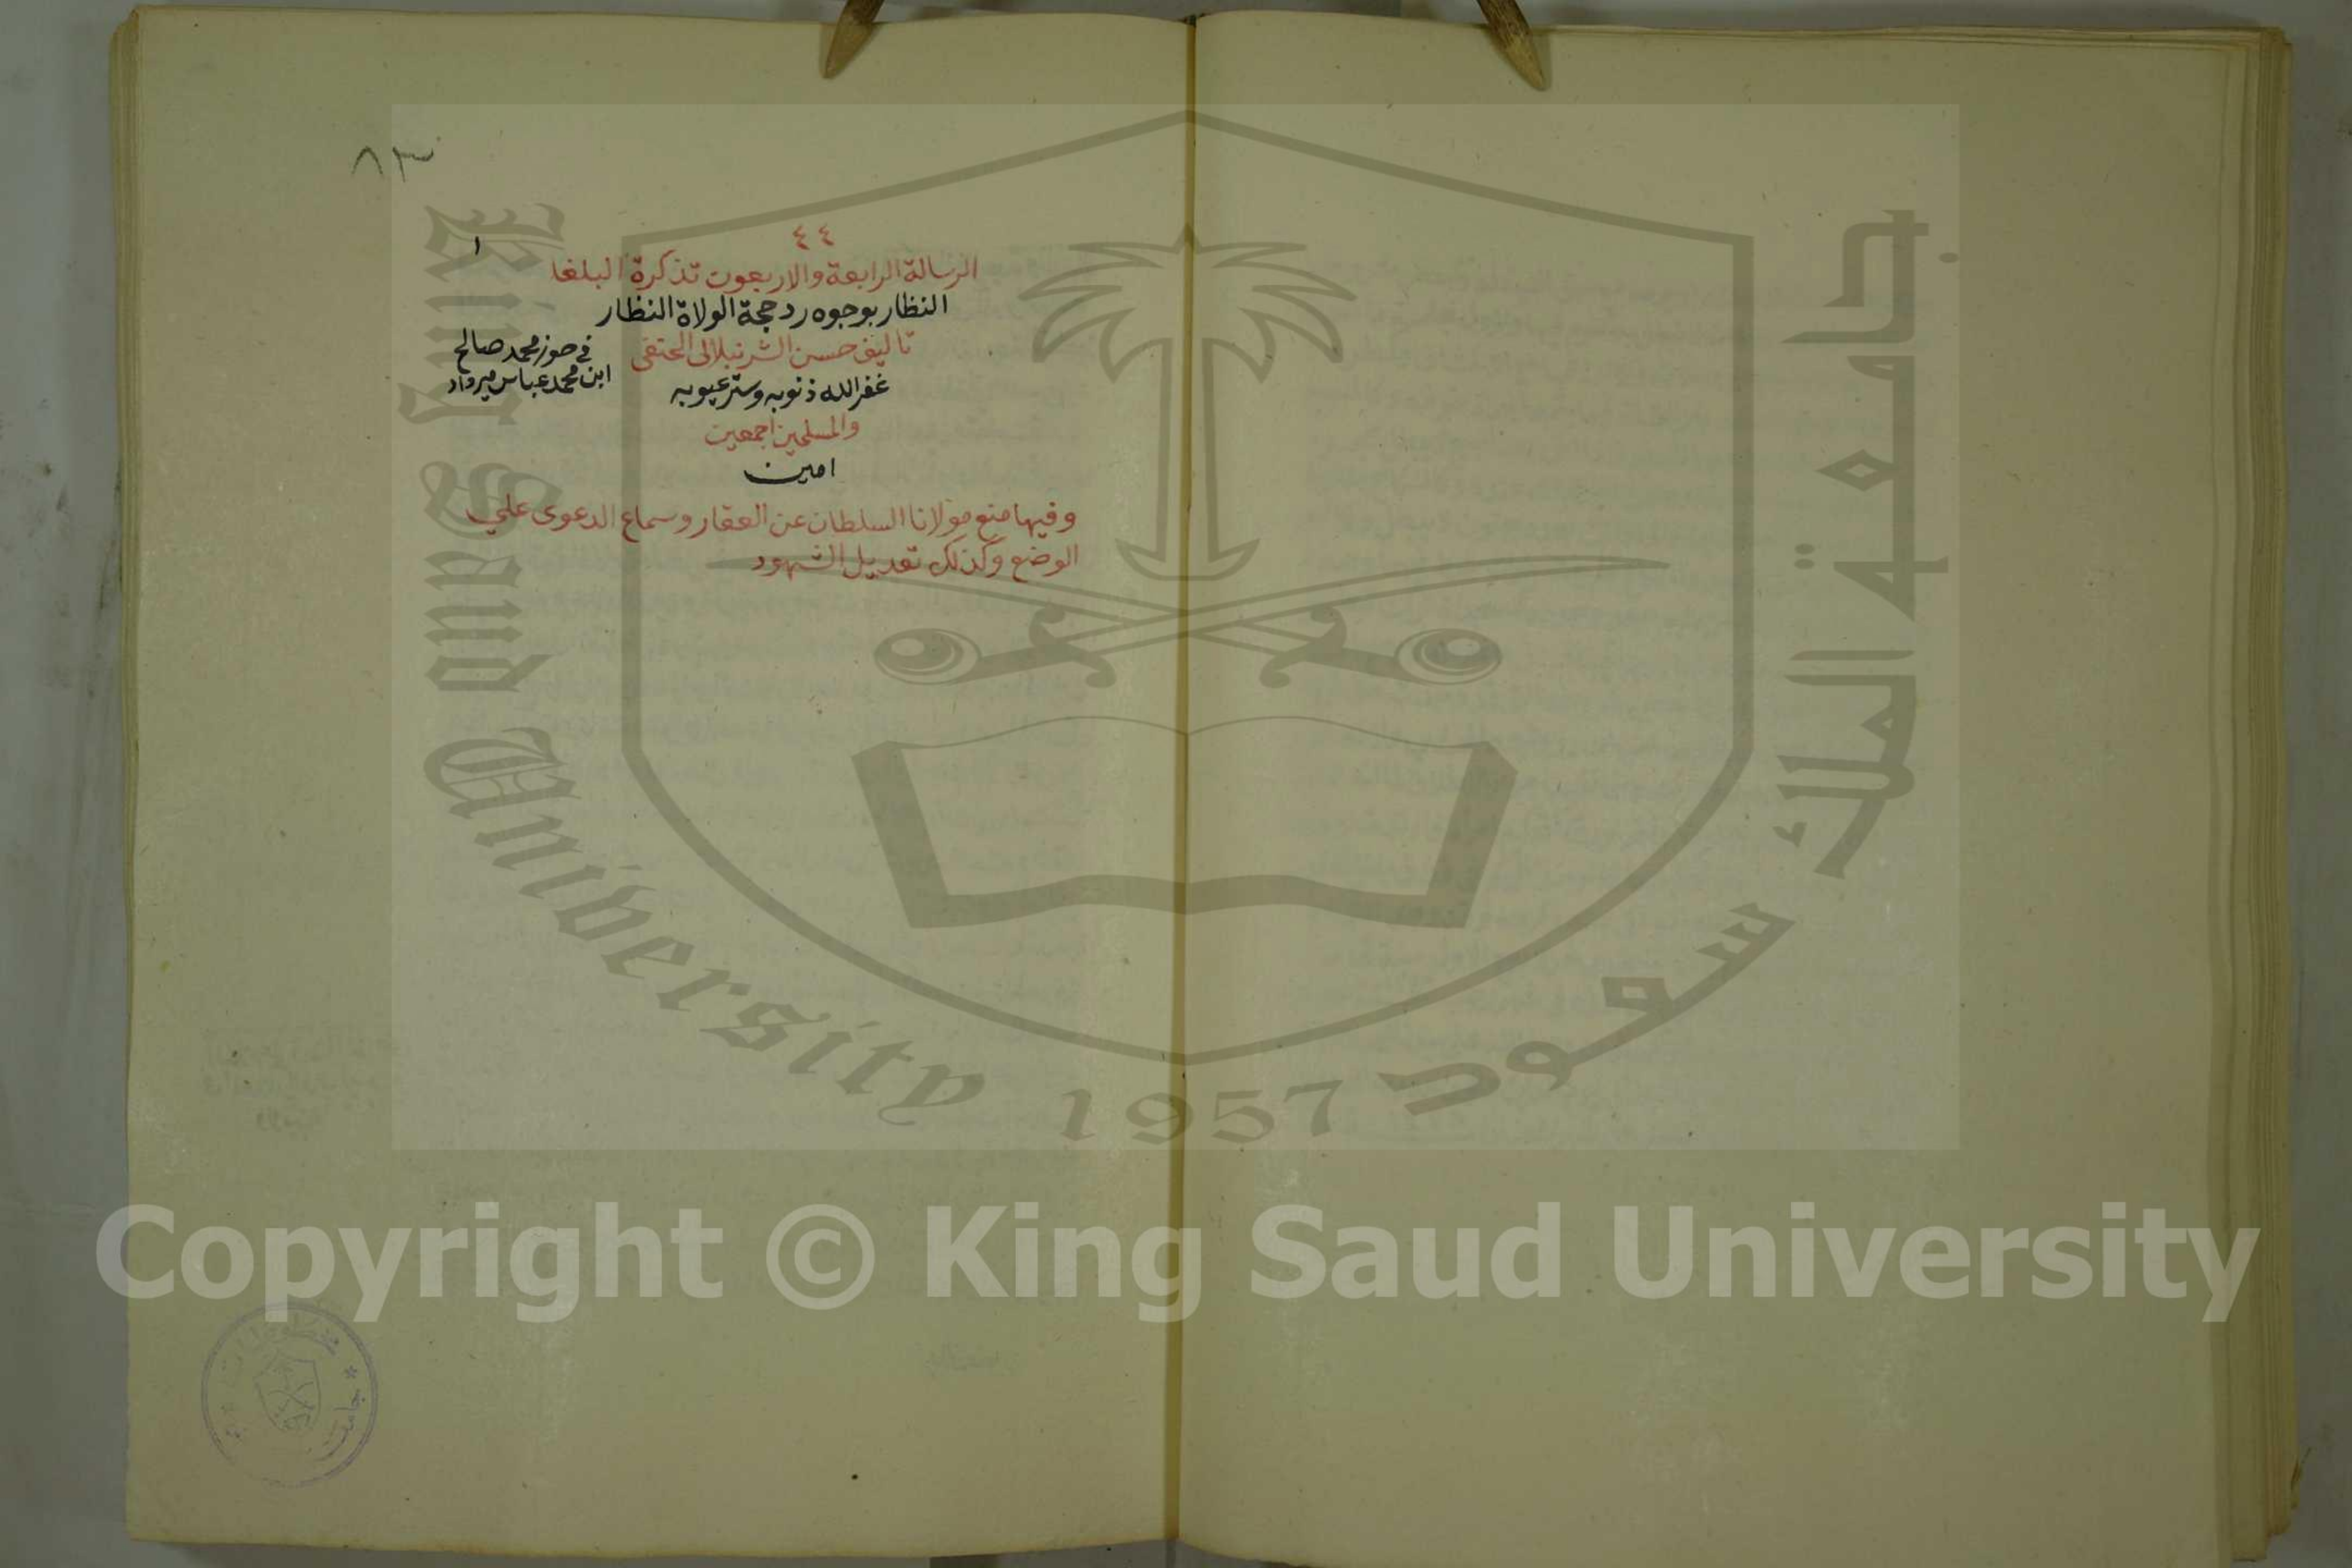 ٨٣
٤٤
١
الرسالة الرابعة والاربعون تذكرة البلغا
النظار بوجوه رد حجة الولاة النظار
تاليف حسن الشرنبلالى الحنفى
غفر الله ذنوبه وستر عيوبه
والمسلمين اجمعين
امين
في حوز محمد صالح
ابن محمد عباس ميرداد
وفيها منع مولانا السلطان عن العقار وسماع الدعوى علي
الوضع وكذلك تعديل الشهود
King Saud University 1957
جامعة الملك سعود
Copyright © King Saud University